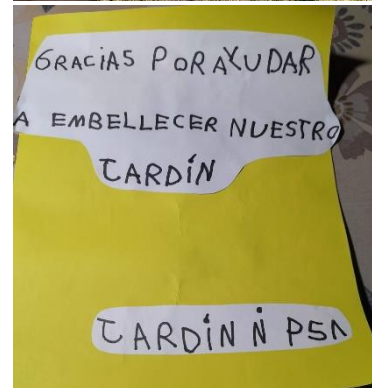 GRACiAS POR AYUDAR
A EMBELLECER NUESTRO
JARDÍN
JARDÍN